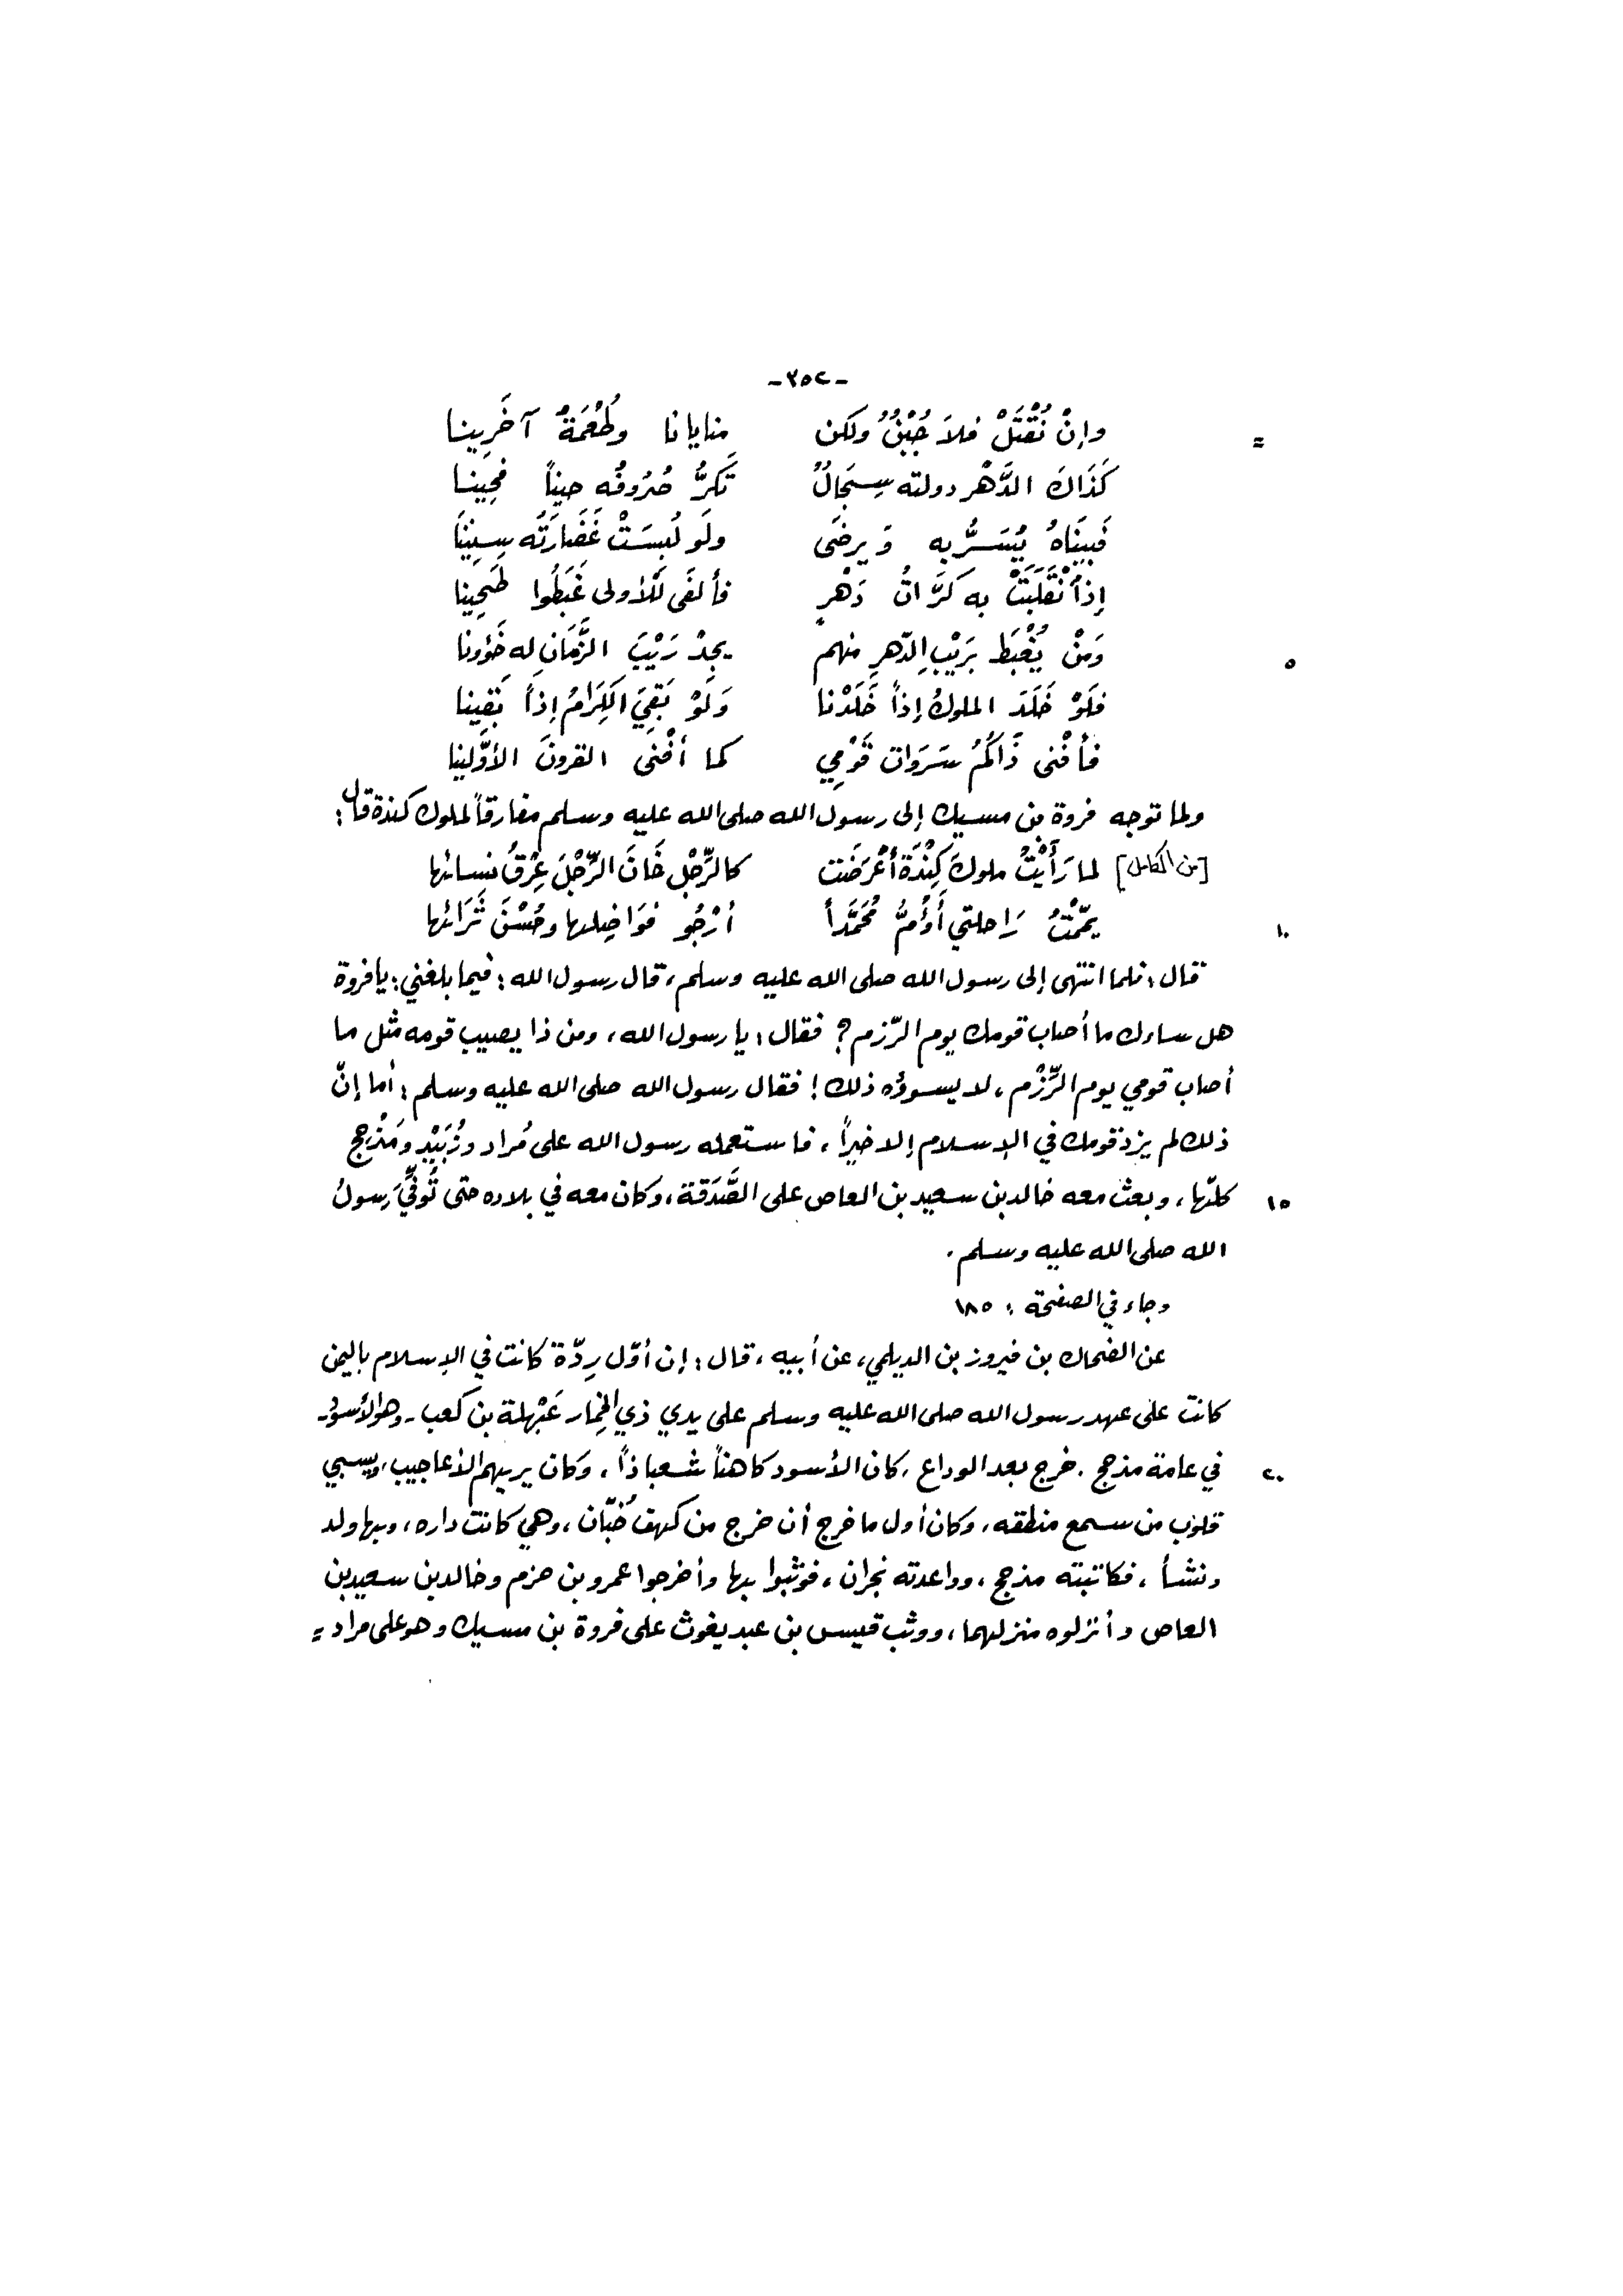 -٢٥٢-
= وإنْ نُقْتَلْ فلاَ جُبْنٌ ولكن منايانا وطُعْمَةُ آخَرِينا
كَذَاكَ الدَّهْر دولته سِجَالٌ تَكِرُّ صُرُوفُه حيناً فحِينا
فَبينَاهُ يُسَرُّ به وَيرضَى ولَو لُبِسَتْ غَضَارَتُه سِنِينَا
إذاْ نْقَلَبَتْ به كَرَّاتُ دَهْرٍ فألفَى للأولى غَبَطُوا طَحِينا
٥ وَمَنْ يُغْبَط بَريْبِ الدّهرِ منهم يجدْ رَيْبَ الزَّمَانِ له خَؤُونا
فلَوْ خَلَدَ الملوكُ إذاً خَلَدْنا وَلَوْ بَقيَ الكِرَامُ إذاً بَقِينا
فأفْنى ذَاكُمُ سَرَوات قَوْمِي كما أفْنى القرونَ الأوَّلينا
ولما توجه فروة بن مسيك إلى رسول الله صلى الله عليه وسلم مفارقاً لملوك كندة قال:
[من الكامل] لما رَأَيْتُ ملوكَ كِنْدَةَ أعْرَضَت كالرِّجْلِ خَانَ الرِّجْلَ عِرْقُ نسائها
١٠ يمّمْتُ رَاحلتي أَؤُمُّ مُحَمَّداً أرْجُو فوَاضِلها وحُسْنَ ثَرَائها
قال: فلما انتهى إلى رسول الله صلى الله عليه وسلم، قال رسول الله: فيما بلغني: يا فروة
هل ساءك ما أصاب قومك يوم الرّزم؟ فقال: يا رسول الله، ومن ذا يصيب قومه مثل ما
أصاب قومي يوم الرِّزْم، لا يسوؤه ذلك! فقال رسول الله صلى الله عليه وسلم: أما إنّ
ذلك لم يزد قومك في الإسلام إلا خيراً، فاستعمله رسول الله على مُراد وزُبَيْدٍ ومَذْحِج
١٥ كلّها، وبعث معه خالد بن سعيد بن العاص على الصَّدَقة، وكان معه في بلاده حتى تُوفِّيَ رسولُ
الله صلى الله عليه وسلم.
وجاء في الصفحة: ١٨٥
عن الضحاك بن فيروز بن الديلمي، عن أبيه، قال: إن أوّل رِدّة كانت في الإسلام باليمن
كانت على عهد رسول الله صلى الله عليه وسلم على يدي ذي الخِمار عَبْهلة بن كعب - وهو الأسودُ -
٢٠ في عامة مذحج. خرج بعد الوداع، كان الأسود كاهناً شعباذاً، وكان يريهم الأعاجيب، ويسبي
قلوب من سمع منطقه، وكان أول ما خرج أن خرج من كهف خُبّان، وهي كانت داره، وبها ولد
ونشأ، فكاتبته مذحج، وواعدته نجران، فوثبوا بها وأخرجوا عمرو بن حزم وخالد بن سعيد بن
العاص وأنزلوه منزلهما، ووثب قيس بن عبد يغوث على فروة بن مسيك وهو على مراد =